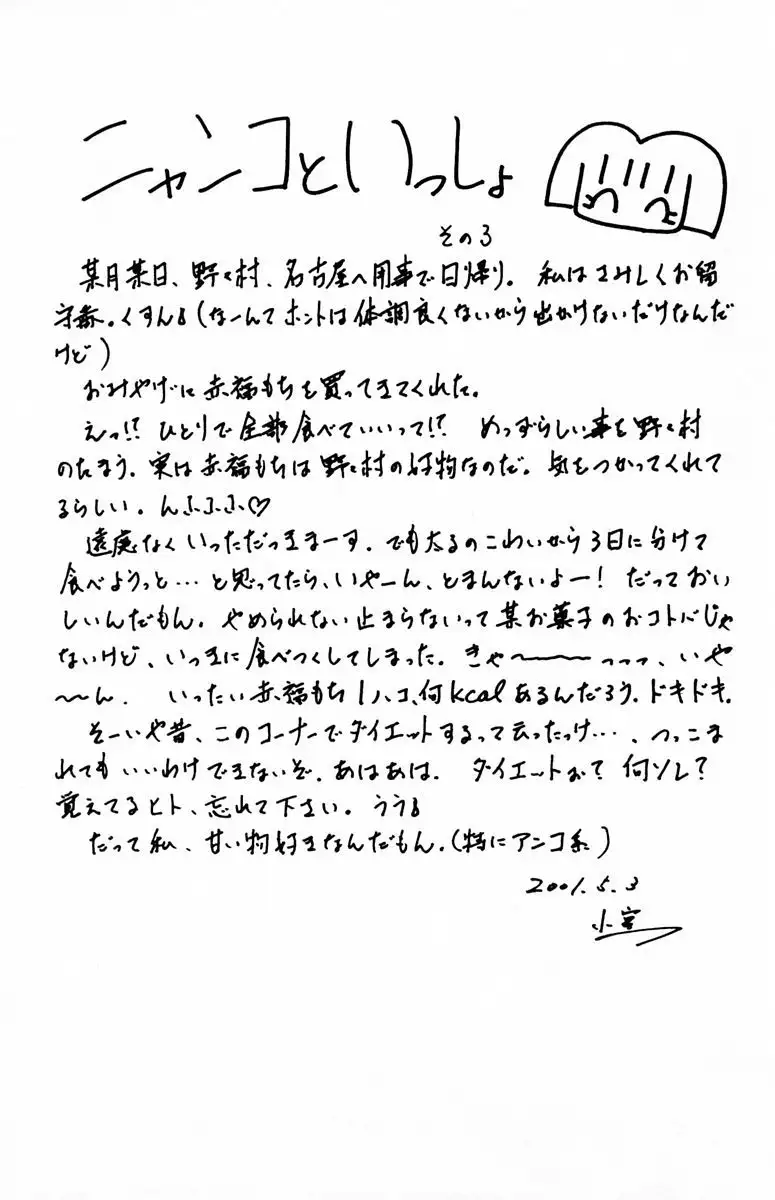 ニャンコといっしょ
その3
某月某日、野々村、名古屋へ用事で日帰り。私はさみしくお留
守番。くすん（なーんてホントは体調良くないから出かけないだけなんだ
けど）
おみやげに赤福もちを買ってきてくれた。
えっ!?ひとりで全部食べていいって!?めっずらしい事を野々村
のたまう。実は赤福もちは野々村の好物なのだ。気をつかってくれて
るらしい。んふふふ♡
遠慮なくいっただっきまーす。でも太るのこわいから3日に分けて
食べようっと…と思ってたら、いやーん、とまんないよー！だっておい
しいんだもん。やめられない止まらないって某お菓子のおコトバじゃ
ないけど、いっきに食べつくしてしまった。きゃ〜〜〜っっっ、いや
〜〜ん。いったい赤福もち1ハコ、何kcalあるんだろう。ドキドキ。
そーいや昔、このコーナーでダイエットするって云ったっけ…、つっこま
れてもいいわけできないぞ。あはあは。ダイエットぉ？何ソレ？
覚えてるヒト、忘れて下さい。うう
だって私、甘い物好きなんだもん。（特にアンコ系）
2001.5.3
小宮